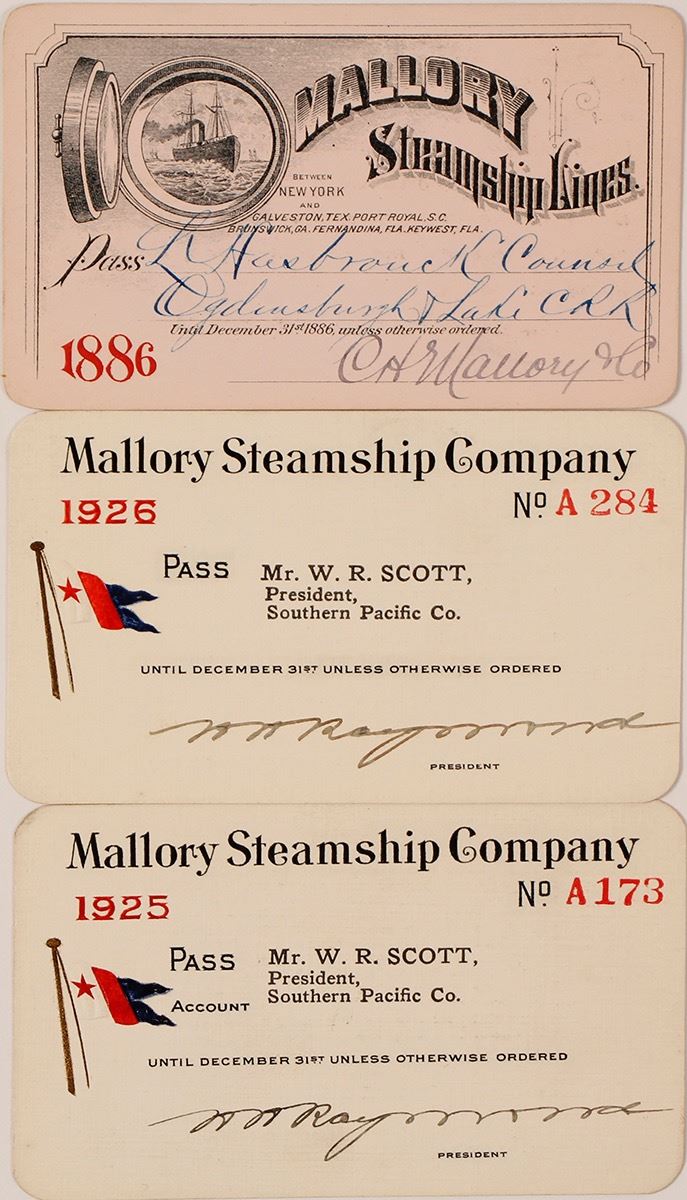 MALLORY
Steamship Lines.
BETWEEN
NEW YORK
AND
GALVESTON, TEX. PORT ROYAL, S.C.
BRUNSWICK, GA. FERNANDINA, FLA. KEY WEST, FLA.
Pass L Hasbrouck Counsel
Ogdensburgh & Lake C R R
Until December 31st 1886, unless otherwise ordered.
1886
C H Mallory & Co
Mallory Steamship Company
1926
No A 284
PASS Mr. W. R. SCOTT,
President,
Southern Pacific Co.
UNTIL DECEMBER 31ST UNLESS OTHERWISE ORDERED
H H Raymond
PRESIDENT
Mallory Steamship Company
1925
No A 173
PASS Mr. W. R. SCOTT,
President,
ACCOUNT Southern Pacific Co.
UNTIL DECEMBER 31ST UNLESS OTHERWISE ORDERED
H H Raymond
PRESIDENT